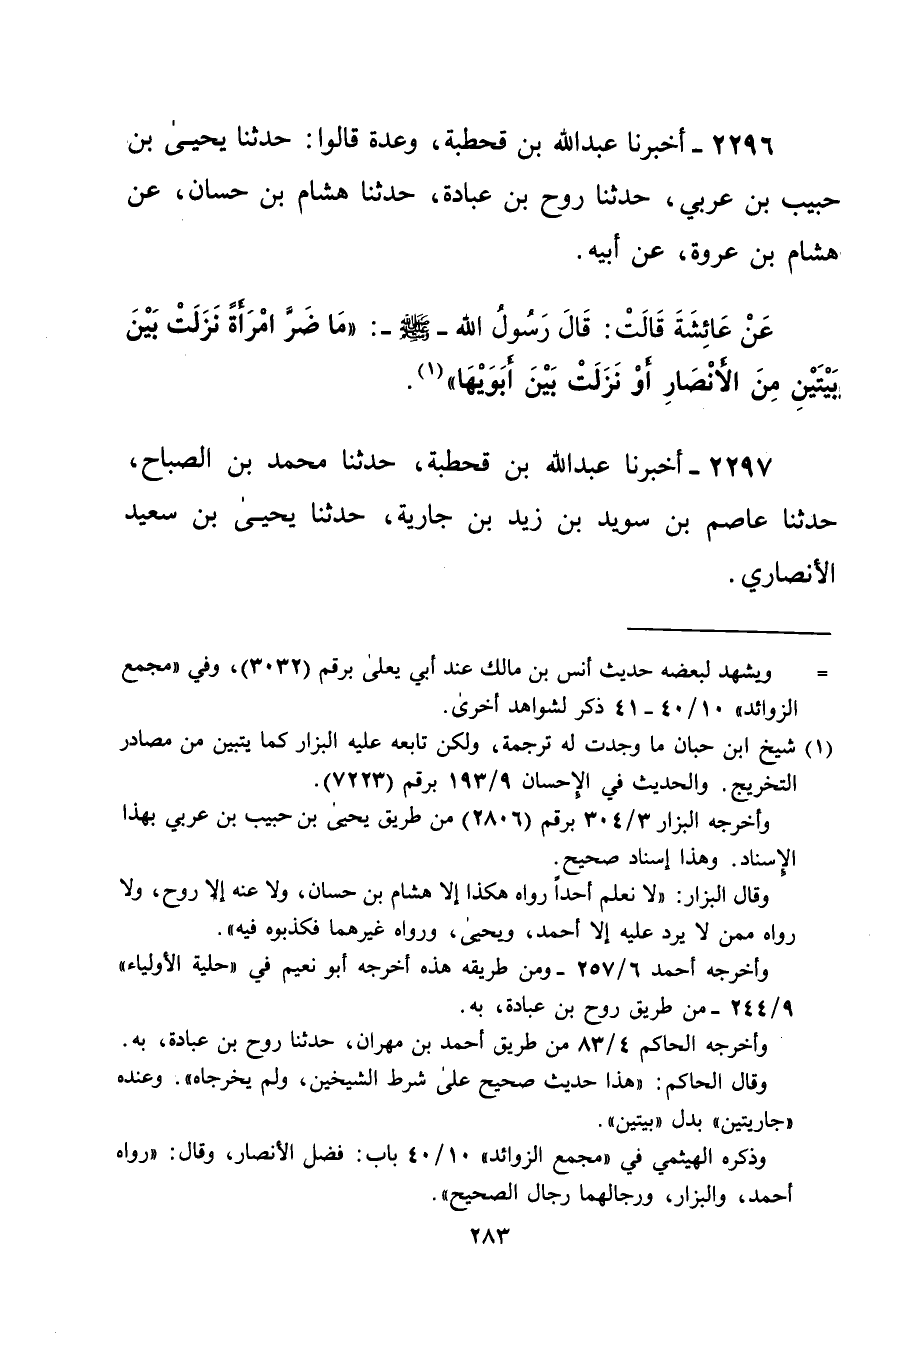 ٢٢٩٦ - أخبرنا عبدالله بن قحطبة، وعدة قالوا: حدثنا يحيىٰ بن
حبيب بن عربي، حدثنا روح بن عبادة، حدثنا هشام بن حسان، عن
هشام بن عروة، عن أبيه.
عَنْ عَائِشَةَ قَالَتْ: قَالَ رَسُولُ الله - ﷺ -: «مَا ضَرَّ امْرَأَةً نَزَلَتْ بَيْنَ
بَيْتَيْنِ مِنَ الأَنْصَارِ أَوْ نَزَلَتْ بَيْنَ أَبَوَيْهَا»(١).
٢٢٩٧ - أخبرنا عبدالله بن قحطبة، حدثنا محمد بن الصباح،
حدثنا عاصم بن سويد بن زيد بن جارية، حدثنا يحيىٰ بن سعيد
الأنصاري.
= ويشهد لبعضه حديث أنس بن مالك عند أبي يعلىٰ برقم (٣٠٣٢)، وفي «مجمع
الزوائد» ٤٠/١٠ - ٤١ ذكر لشواهد أخرىٰ.
(١) شيخ ابن حبان ما وجدت له ترجمة، ولكن تابعه عليه البزار كما يتبين من مصادر
التخريج. والحديث في الإحسان ١٩٣/٩ برقم (٧٢٢٣).
وأخرجه البزار ٣٠٤/٣ برقم (٢٨٠٦) من طريق يحيىٰ بن حبيب بن عربي بهذا
الإسناد. وهذا إسناد صحيح.
وقال البزار: «لا نعلم أحداً رواه هكذا إلا هشام بن حسان، ولا عنه إلا روح، ولا
رواه ممن لا يرد عليه إلا أحمد، ويحيىٰ، ورواه غيرهما فكذبوه فيه».
وأخرجه أحمد ٢٥٧/٦ - ومن طريقه هذه أخرجه أبو نعيم في «حلية الأولياء»
٢٤٤/٩ - من طريق روح بن عبادة، به.
وأخرجه الحاكم ٨٣/٤ من طريق أحمد بن مهران، حدثنا روح بن عبادة، به.
وقال الحاكم: «هذا حديث صحيح علىٰ شرط الشيخين، ولم يخرجاه». وعنده
«جاريتين» بدل «بيتين».
وذكره الهيثمي في «مجمع الزوائد» ٤٠/١٠ باب: فضل الأنصار، وقال: «رواه
أحمد، والبزار، ورجالهما رجال الصحيح».
٢٨٣